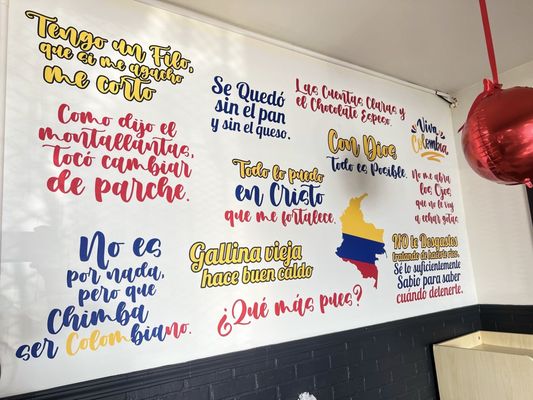 Tengo un Filo,
que si me agacho
me corto
Como dijo el
montallantas,
Tocó cambiar
de parche.
No es
por nada,
pero que
Chimba
ser Colombiano.
Se Quedó
sin el pan
y sin el queso.
Las Cuentas Claras y
el Chocolate Espeso.
Con Dios
Todo es Posible.
Viva
Colombia
Todo lo puedo
en Cristo
que me fortalece.
No me abra
los Ojos
que no le voy
a echar gotas
Gallina vieja
hace buen caldo
¿Qué más pues?
NO te Desgastes
tratando de hacerte rico.
Sé lo suficientemente
Sabio para saber
cuándo detenerte.